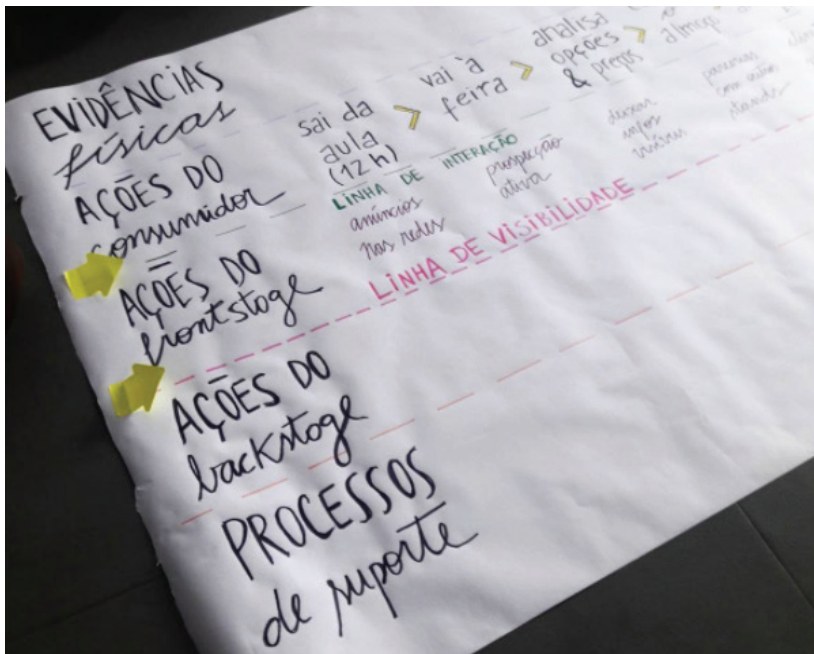 EVIDÊNCIAS
físicas
AÇÕES DO
consumidor
sai da
aula
(12h)
vai à
feira
analisa
opções
& preços
almoço
LINHA DE INTERAÇÃO
AÇÕES DO
frontstage
anúncios
nas redes
prospecção
ativa
deixar
infos
visíveis
parcerias
com outros
stands
LINHA DE VISIBILIDADE
AÇÕES DO
backstage
PROCESSOS
de suporte